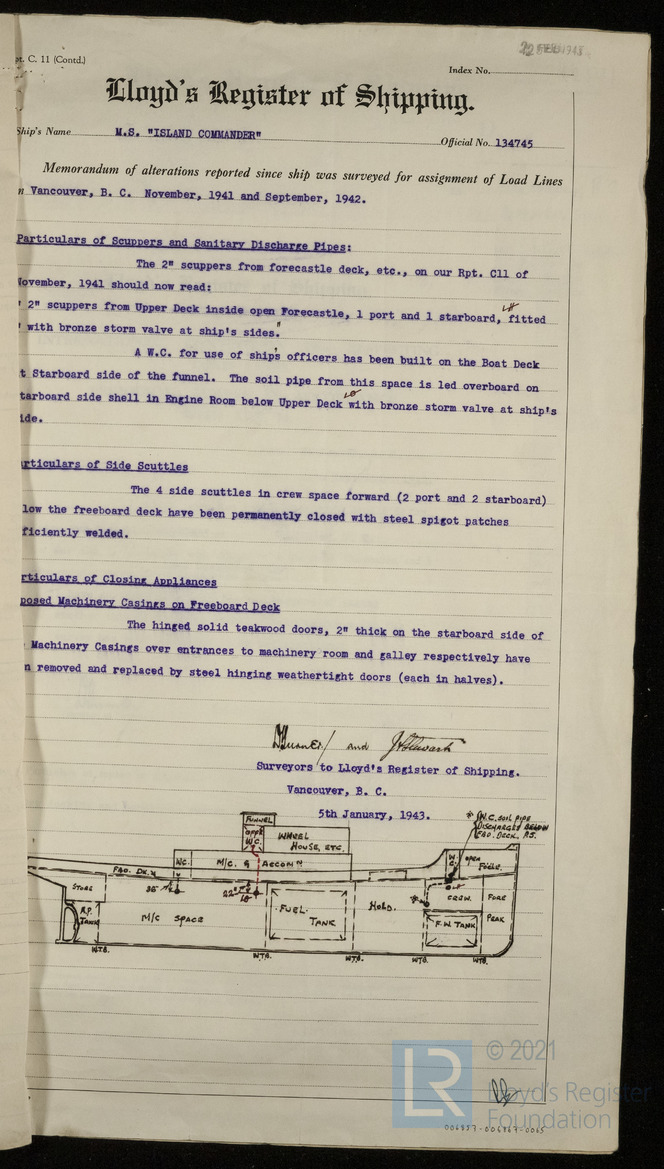 pt. C. 11 (Contd.)
Index No.
Lloyd's Register of Shipping.
Ship's Name M.S. "ISLAND COMMANDER"
Official No. 134745
Memorandum of alterations reported since ship was surveyed for assignment of Load Lines
n Vancouver, B. C. November, 1941 and September, 1942.
Particulars of Scuppers and Sanitary Discharge Pipes:
The 2" scuppers from forecastle deck, etc., on our Rpt. C11 of
November, 1941 should now read:
' 2" scuppers from Upper Deck inside open Forecastle, 1 port and 1 starboard, fitted
' with bronze storm valve at ship's sides."
A W.C. for use of ship's officers has been built on the Boat Deck
t Starboard side of the funnel. The soil pipe from this space is led overboard on
tarboard side shell in Engine Room below Upper Deck with bronze storm valve at ship's
ide.
rticulars of Side Scuttles
The 4 side scuttles in crew space forward (2 port and 2 starboard)
low the freeboard deck have been permanently closed with steel spigot patches
fficiently welded.
rticulars of Closing Appliances
posed Machinery Casings on Freeboard Deck
The hinged solid teakwood doors, 2" thick on the starboard side of
Machinery Casings over entrances to machinery room and galley respectively have
n removed and replaced by steel hinging weathertight doors (each in halves).
and
Surveyors to Lloyd's Register of Shipping.
Vancouver, B. C.
5th January, 1943.
* W.C. SOIL PIPE
DISCHARGES BELOW
FBD. DECK. P.S.
FUNNEL
OFFR'S
W.C.
WHEEL
HOUSE, ETC.
WC.
M/C. & ACCOMN
W.
C.
OPEN
FO'C'LE.
FBD. DK.
STORE
35"
22"
CREW.
FORE
PEAK
A.P.
TANK
M/C SPACE
FUEL
TANK
HOLD.
F.W. TANK
W.T.B.
W.T.B.
W.T.B.
W.T.B.
W.T.B.
LR
© 2021
Lloyd's Register
Foundation
006857-006867-0065